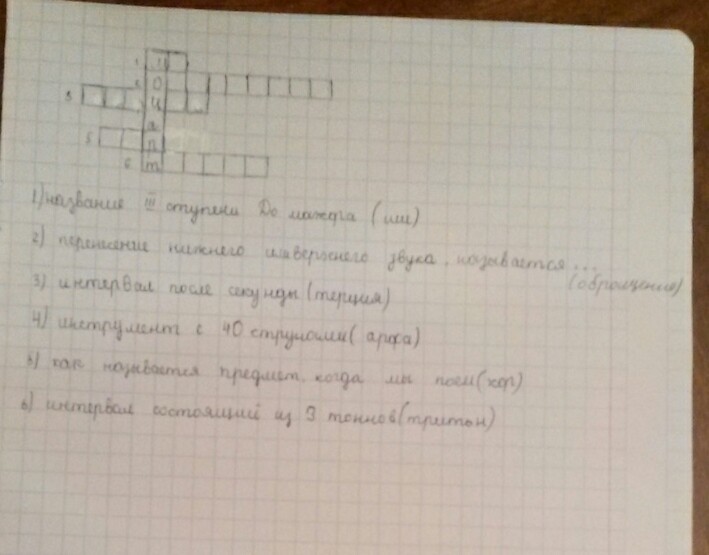 1
2 О
3 ц
а
5 п
6 т
1) название III ступени До мажора (ми)
2) перенесение нижнего или верхнего звука, называется...
(обращение)
3) интервал после секунды (терция)
4) инструмент с 40 струнами (арфа)
5) как называется предмет, когда мы поём (хор)
6) интервал состоящий из 3 тоннов (тритон)